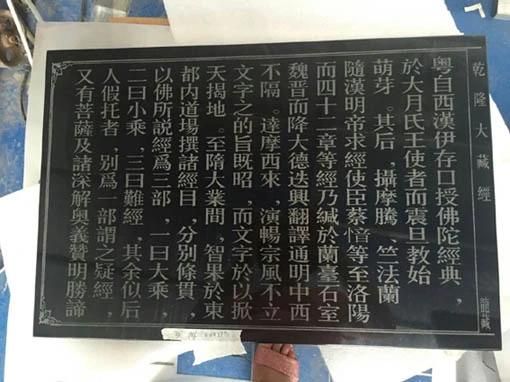 乾隆大藏經
粤自西漢伊存口授佛陀經典，
於大月氏王使者而震旦教始
萌芽。其后，攝摩騰、竺法蘭
隨漢明帝求經使臣蔡愔等至洛陽
而四十二章等經乃緘於蘭臺石室
魏晋而降大德迭興翻譯通明中西
不隔。達摩西來，演暢宗風不立
文字之的旨既昭，而文字於以掀
天揭地。至隋大業間，智果於東
都内道場撰諸經目，分别條貫，
以佛所説經爲三部，一曰大乘，
二曰小乘，三曰雜經，其余似后
人假托者，别爲一部謂之疑經，
又有菩薩及諸深解奥義贊明勝諦
龍藏